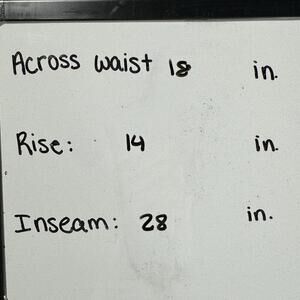 Across waist 18 in.
Rise: 14 in.
Inseam: 28 in.